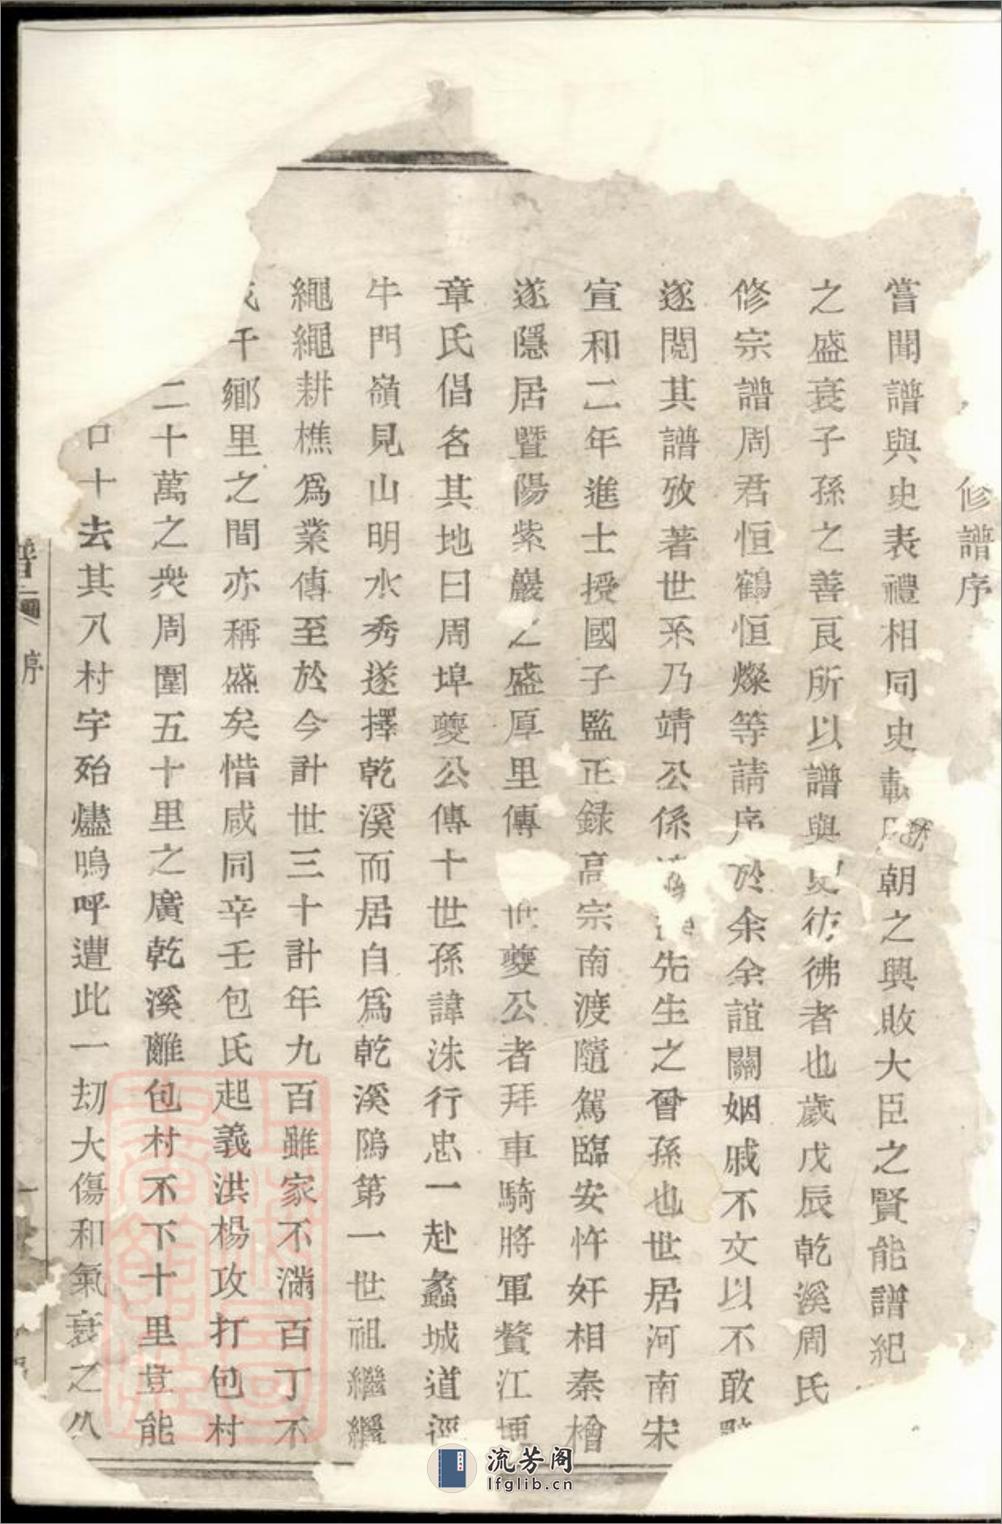 修譜序
嘗聞譜與史表禮相同史載歷朝之興敗大臣之賢能譜紀
之盛衰子孫之善良所以譜與史彷彿者也歲戊辰乾溪周氏
修宗譜周君恒鶴恒燦等請序於余余誼關姻戚不文以不敢
遂閱其譜攷著世系乃靖公係先生之曾孫也世居河南宋
宣和二年進士授國子監正録高宗南渡隨駕臨安忤奸相秦檜
遂隱居暨陽紫巖之盛厚里傳世夔公者拜車騎將軍贅江
章氏倡名其地曰周埠夔公傳十世孫諱洙行忠一赴蠡城道逕
牛門嶺見山明水秀遂擇乾溪而居自為乾溪隝第一世祖繼繼
繩繩耕樵為業傳至於今計世三十計年九百雖家不滿百丁不
千鄉里之間亦稱盛矣惜咸同辛壬包氏起義洪楊攻打包村
二十萬之衆周圍五十里之廣乾溪離包村不下十里豈能
口十去其八村宇殆燼嗚呼遭此一刼大傷和氣衰之
譜 序
流芳阁
lfglib.cn